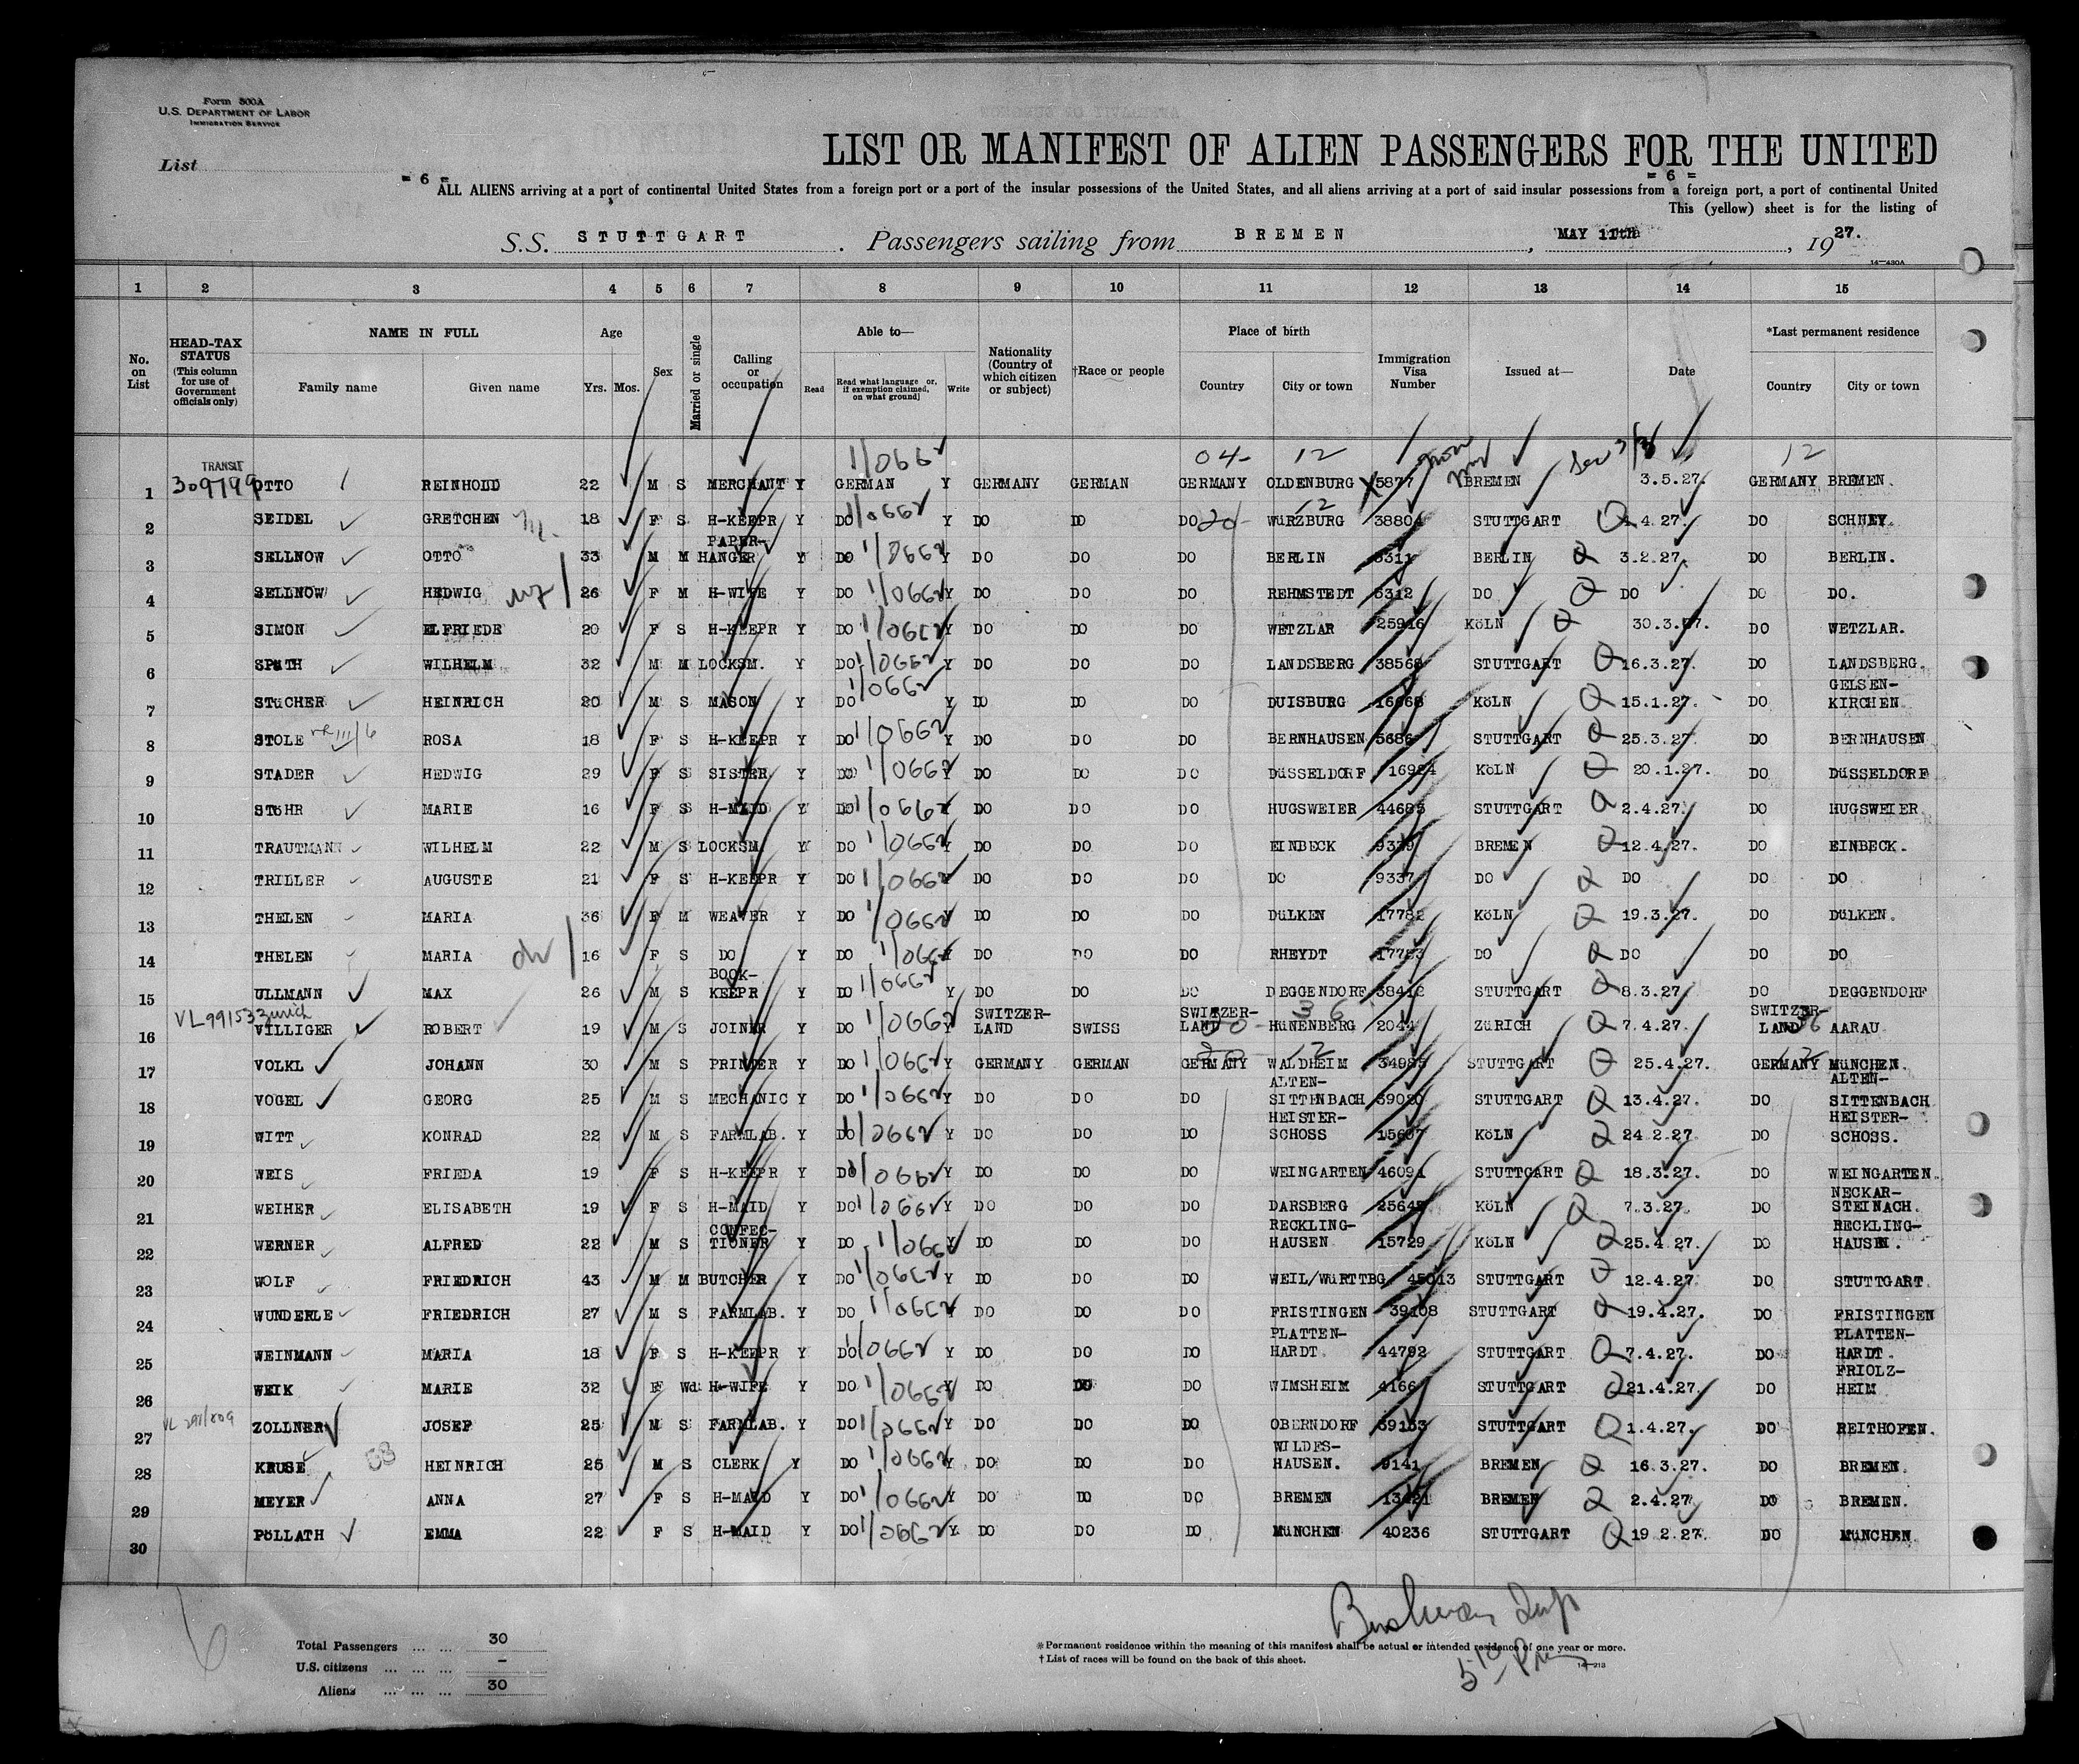 Form 500A
U.S. DEPARTMENT OF LABOR
IMMIGRATION SERVICE
List
= 6 =
LIST OR MANIFEST OF ALIEN PASSENGERS FOR THE UNITED
= 6 =
ALL ALIENS arriving at a port of continental United States from a foreign port or a port of the insular possessions of the United States, and all aliens arriving at a port of said insular possessions from a foreign port, a port of continental United
This (yellow) sheet is for the listing of
S.S. STUTTGART. Passengers sailing from BREMEN, MAY 11th, 1927.
14—430A
1 2 3 4 5 6 7 8 9 10 11 12 13 14 15
No. on List
HEAD-TAX STATUS (This column for use of Government officials only)
NAME IN FULL
Family name Given name
Age
Yrs. Mos.
Sex
Married or single
Calling or occupation
Able to—
Read
Read what language or, if exemption claimed, on what ground]
Write
Nationality (Country of which citizen or subject)
†Race or people
Place of birth
Country City or town
Immigration Visa Number
Issued at—
Date
*Last permanent residence
Country City or town
1/0662 04- 12 12
TRANSIT
1 309799 OTTO REINHOLD 22 M S MERCHANT Y GERMAN Y GERMANY GERMAN GERMANY OLDENBURG 5877 BREMEN 3.5.27. GERMANY BREMEN.
2 SEIDEL GRETCHEN 18 F S H-KEEPR Y DO 1/0662 Y DO DO DO 20- WüRZBURG 12 38804 STUTTGART Q 4.27. DO SCHNEY.
3 SELLNOW OTTO 33 M M PAPER-HANGER Y DO 1/0662 Y DO DO DO BERLIN BERLIN Q 3.2.27. DO BERLIN.
4 SELLNOW HEDWIG 26 F M H-WIFE Y DO 1/0662 Y DO DO DO REHMSTEDT DO Q DO DO DO.
5 SIMON ELFRIEDE 20 F S H-KEEPR Y DO 1/0662 Y DO DO DO WETZLAR 25946 KöLN Q 30.3.27. DO WETZLAR.
6 SPäTH WILHELM 32 M M LOCKSM. Y DO 1/0662 Y DO DO DO LANDSBERG 38568 STUTTGART Q 16.3.27. DO LANDSBERG.
7 STüCHER HEINRICH 20 M S MASON Y DO 1/0662 Y DO DO DO DUISBURG KöLN Q 15.1.27. DO GELSEN-KIRCHEN
8 STOLE ROSA 18 F S H-KEEPR Y DO 1/0662 Y DO DO DO BERNHAUSEN STUTTGART Q 25.3.27. DO BERNHAUSEN
9 STADER HEDWIG 29 F S SISTER Y DO 1/0662 Y DO DO DO DüSSELDORF 16924 KöLN Q 20.1.27. DO DüSSELDORF
10 STöHR MARIE 16 F S H-MAID Y DO 1/0662 Y DO DO DO HUGSWEIER 44685 STUTTGART Q 2.4.27. DO HUGSWEIER
11 TRAUTMANN WILHELM 22 M S LOCKSM. Y DO 1/0662 Y DO DO DO EINBECK 9339 BREMEN Q 12.4.27. DO EINBECK.
12 TRILLER AUGUSTE 21 F S H-KEEPR Y DO 1/0662 Y DO DO DO DO 9337 DO Q DO DO DO
13 THELEN MARIA 36 F M WEAVER Y DO 1/0662 Y DO DO DO DüLKEN 17782 KöLN Q 19.3.27. DO DüLKEN.
14 THELEN MARIA 16 F S DO Y DO 1/0662 Y DO DO DO RHEYDT 17783 DO Q DO DO DO
15 ULLMANN MAX 26 M S BOOK-KEEPR Y DO 1/0662 Y DO DO DO DEGGENDORF 38412 STUTTGART Q 8.3.27. DO DEGGENDORF
VL99153 Zurich
16 VILLIGER ROBERT 19 M S JOINER Y DO 1/0662 Y SWITZER-LAND SWISS SWITZER-LAND HüNENBERG 36 2044 ZüRICH Q 7.4.27. SWITZER-LAND 36 AARAU
17 VOLKL JOHANN 30 M S PRINTER Y DO 1/0662 Y GERMANY GERMAN GERMANY 20 WALDHEIM 12 34985 STUTTGART Q 25.4.27. GERMANY 12 MüNCHEN.
18 VOGEL GEORG 25 M S MECHANIC Y DO 1/0662 Y DO DO DO ALTEN-SITTENBACH STUTTGART Q 13.4.27. DO ALTEN-SITTENBACH
19 WITT KONRAD 22 M S FARMLAB. Y DO 1/0662 Y DO DO DO HEISTER-SCHOSS 15607 KöLN Q 24.2.27 DO HEISTER-SCHOSS.
20 WEIS FRIEDA 19 F S H-KEEPR Y DO 1/0662 Y DO DO DO WEINGARTEN 46091 STUTTGART Q 18.3.27. DO WEINGARTEN.
21 WEIHER ELISABETH 19 F S H-MAID Y DO 1/0662 Y DO DO DO DARSBERG KöLN Q 7.3.27. DO NECKAR-STEINACH.
22 WERNER ALFRED 22 M S CONFEC-TIONER Y DO 1/0662 Y DO DO DO RECKLING-HAUSEN 15729 KöLN Q 25.4.27. DO RECKLING-HAUSEN.
23 WOLF FRIEDRICH 43 M M BUTCHER Y DO 1/0662 Y DO DO DO WEIL/WüRTTBG. 45013 STUTTGART Q 12.4.27. DO STUTTGART.
24 WUNDERLE FRIEDRICH 27 M S FARMLAB. Y DO 1/0662 Y DO DO DO FRISTINGEN 39108 STUTTGART Q 19.4.27. DO FRISTINGEN
25 WEINMANN MARIA 18 F S H-KEEPR Y DO 1/0662 Y DO DO DO PLATTEN-HARDT 44792 STUTTGART Q 7.4.27. DO PLATTEN-HARDT.
26 WEIK MARIE 32 F Wd. H-WIFE Y DO 1/0662 Y DO DO DO WIMSHEIM STUTTGART Q 21.4.27. DO FRIOLZ-HEIM
27 ZOLLNER JOSEF 25 M S FARMLAB. Y DO 1/0662 Y DO DO DO OBERNDORF 39153 STUTTGART Q 1.4.27. DO REITHOFEN.
28 KRUSE HEINRICH 25 M S CLERK Y DO 1/0662 Y DO DO DO WILDES-HAUSEN. 9141 BREMEN Q 16.3.27. DO BREMEN.
29 MEYER ANNA 27 F S H-MAID Y DO 1/0662 Y DO DO DO BREMEN 13421 BREMEN Q 2.4.27. DO BREMEN.
30 PöLLATH EMMA 22 F S H-MAID Y DO 1/0662 Y DO DO DO MüNCHEN 40236 STUTTGART Q 19.2.27. DO MüNCHEN.
6
Total Passengers ... ... 30
U.S. citizens ... ... ... –
Aliens ... ... ... 30
*Permanent residence within the meaning of this manifest shall be actual or intended residence of one year or more.
†List of races will be found on the back of this sheet.